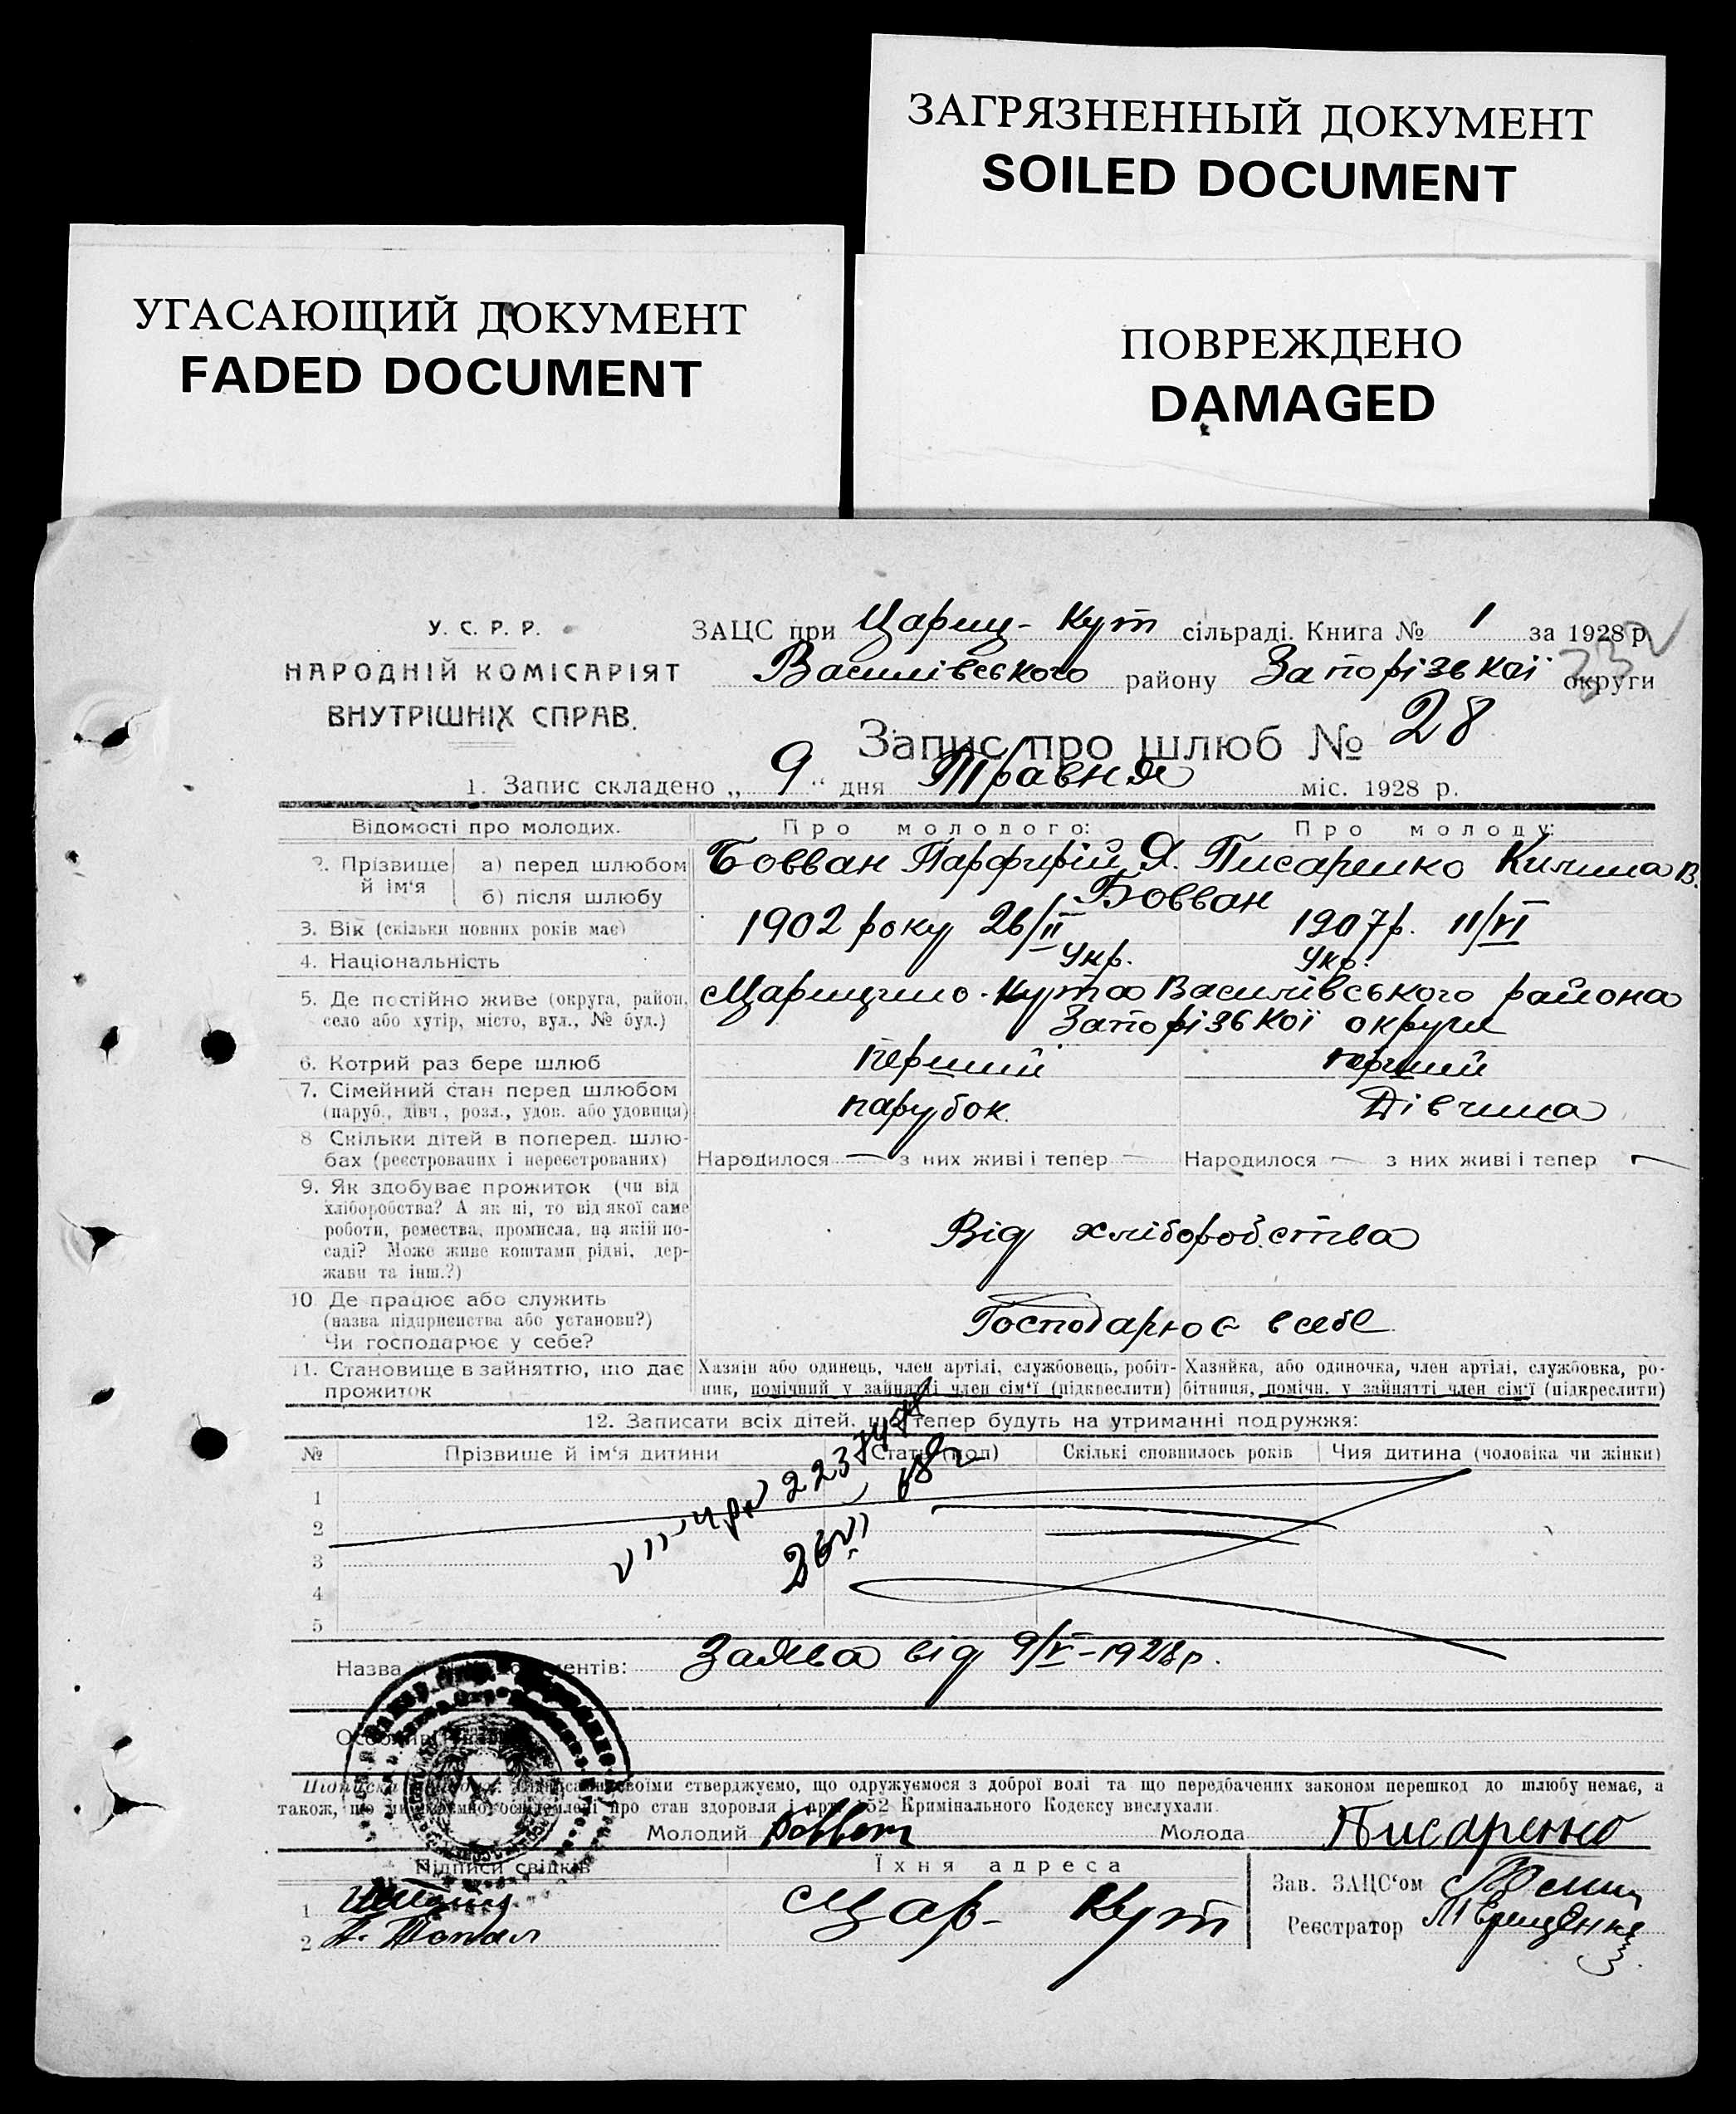 ЗАГРЯЗНЕННЫЙ ДОКУМЕНТ
SOILED DOCUMENT
УГАСАЮЩИЙ ДОКУМЕНТ
FADED DOCUMENT
ПОВРЕЖДЕНО
DAMAGED
У. С. Р. Р.
НАРОДНІЙ КОМІСАРІЯТ
ВНУТРІШНІХ СПРАВ.
ЗАЦС при Цариц-Кут сільраді. Книга № 1 за 1928 р.
Василівського району Запорізької округи
Запис про шлюб № 28
1. Запис складено „ 9 “ дня Травня міс. 1928 р.
Відомості про молодих. Про молодого: Про молоду:
2. Прізвище й ім‘я а) перед шлюбом Бовван Парфирій Я. Писаренко Килина В.
б) після шлюбу Бовван
3. Вік (скільки повних років має) 1902 року 26/II 1907р. 11/VI
4. Національність Укр. Укр.
5. Де постійно живе (округа, район, село або хутір, місто, вул., № буд.) Царицино-Кута Василівського района
Запорізької округи
6. Котрий раз бере шлюб перший перший
7. Сімейний стан перед шлюбом (паруб., дівч., розл., удов. або удовиця) парубок Дівчина
8 Скільки дітей в поперед. шлюбах (реєстрованих і нереєстрованих) Народилося — з них живі і тепер — Народилося — з них живі і тепер —
9. Як здобуває прожиток (чи від
хліборобства? А як ні, то від якої саме
роботи, ремества, промисла, на якій по-
саді? Може живе коштами рідні, дер-
жави та інш.?)
Від хліборобства
10. Де працює або служить
(назва підприємства або установи?)
Чи господарює у себе?
Господарює в себе
11. Становище в зайняттю, що дає прожиток
Хазяін або одинець, член артілі, службовець, робіт-
ник, помічний у зайнятті член сім‘ї (підкреслити)
Хазяйка, або одиночка, член артілі, службовка, ро-
бітниця, помічн. у зайнятті член сім‘ї (підкреслити)
12. Записати всіх дітей, що тепер будуть на утриманні подружжя:
№ Прізвище й ім‘я дитини Стать (пол) Скількі сповнилось років Чия дитина (чоловіка чи жінки)
1
2
3
4
5
Заява від 9/V-1928р.
своїми стверджуємо, що одружуємося з доброї волі та що передбачених законом перешкод до шлюбу немає, а
також, що про стан здоровля і арт. 152 Кримінального Кодексу вислухали.
Молодий Молода Писаренко
Підписи свідків Їхня адреса
Зав. ЗАЦС‘ом
1 Цар-Кут
Реєстратор
2